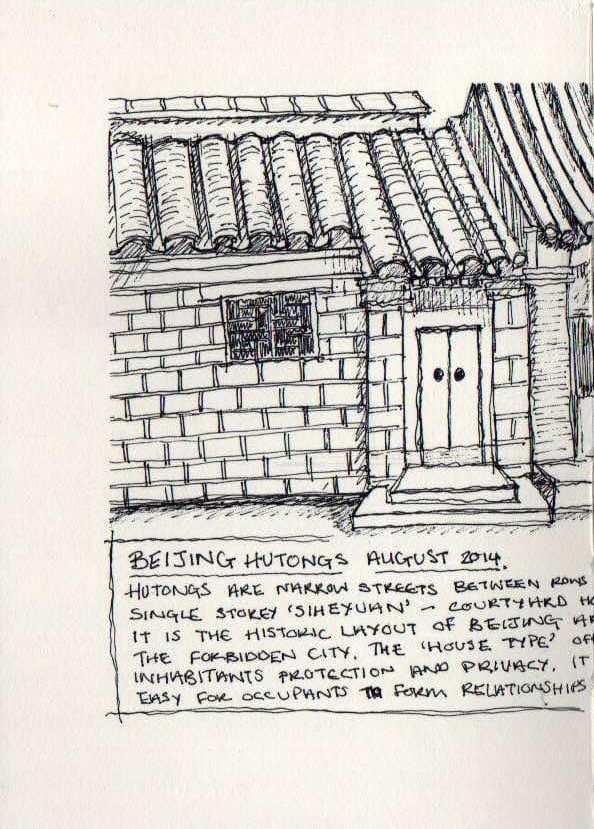 BEIJING HUTONGS AUGUST 2014.
HUTONGS ARE NARROW STREETS BETWEEN ROWS
SINGLE STOREY 'SIHEYUAN' - COURTYARD HO
IT IS THE HISTORIC LAYOUT OF BEIJING AR
THE FORBIDDEN CITY. THE 'HOUSE TYPE' OFF
INHABITANTS PROTECTION AND PRIVACY. IT
EASY FOR OCCUPANTS TO FORM RELATIONSHIPS